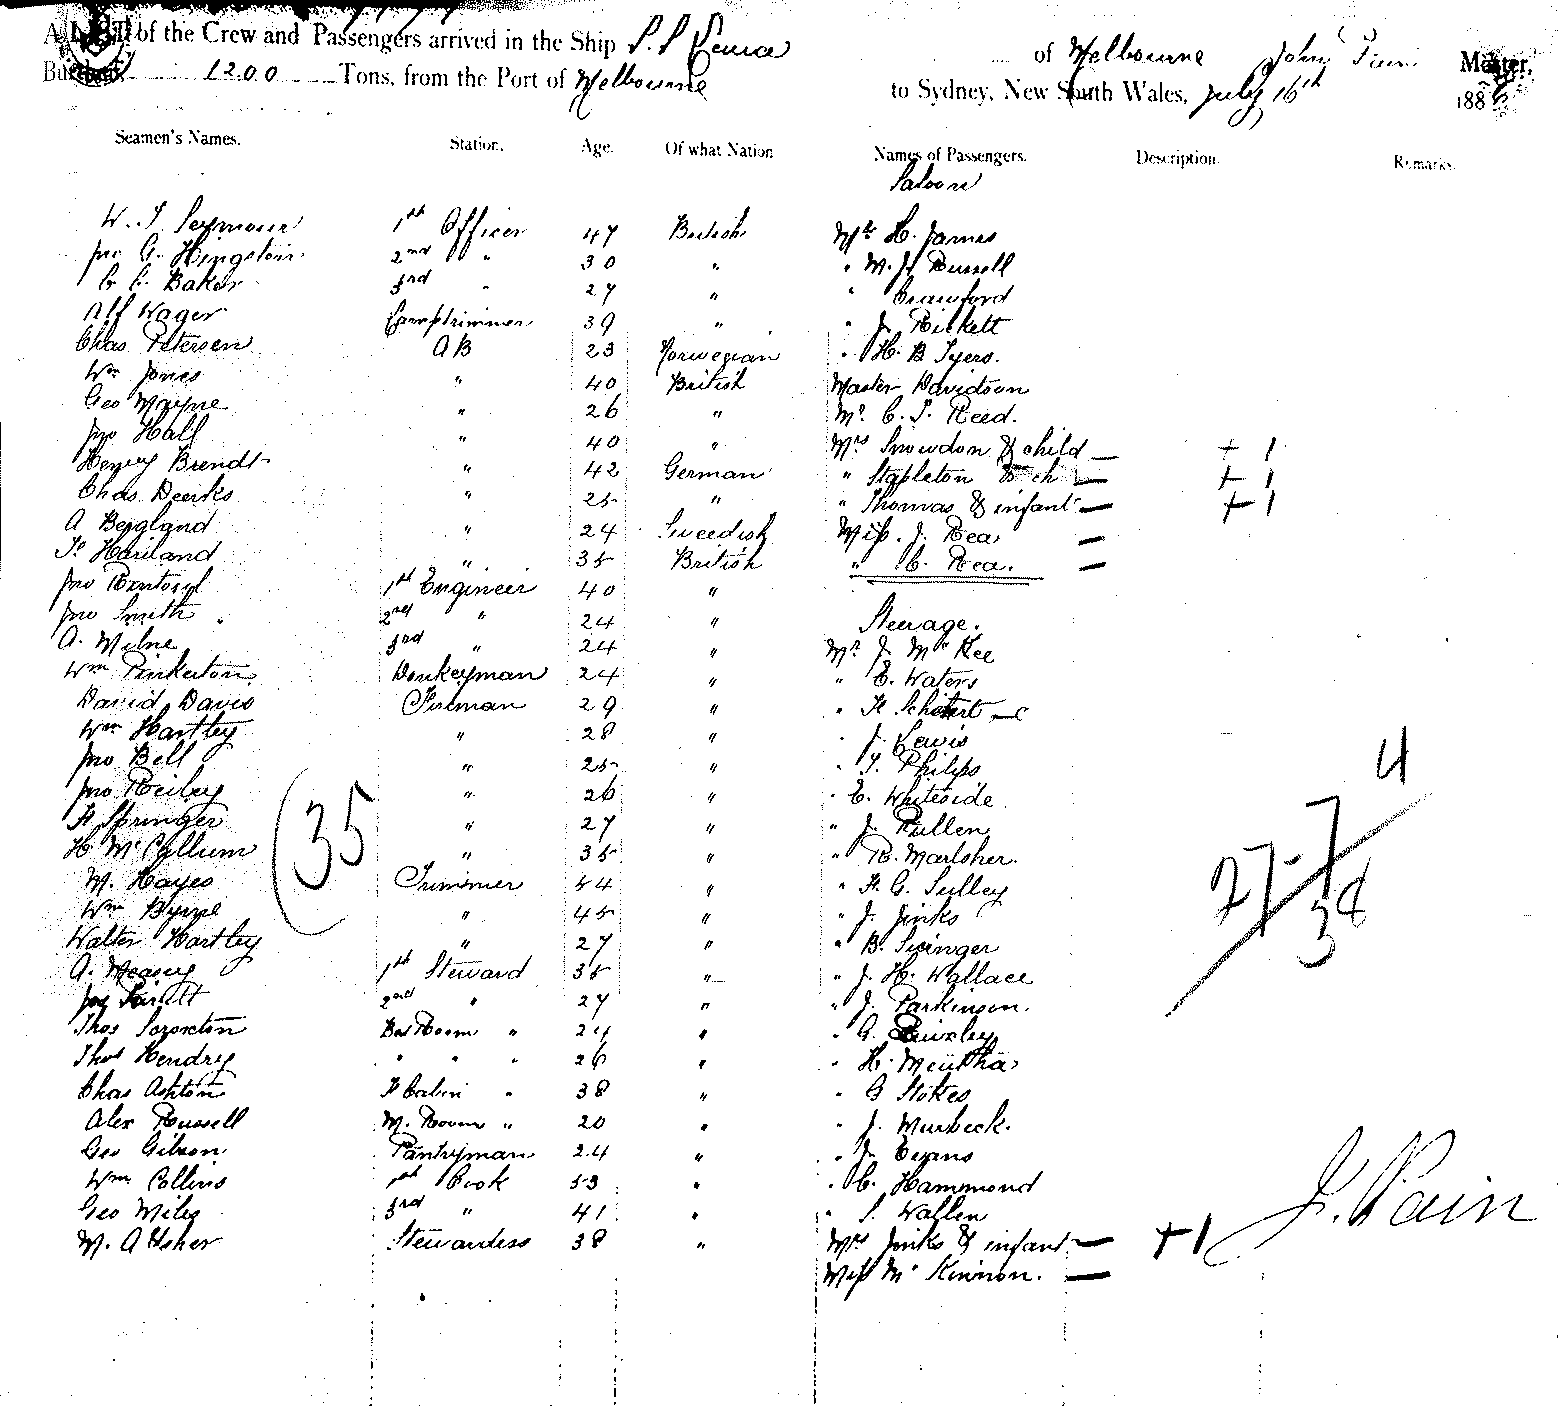 A LIST of the Crew and Passengers arrived in the Ship S.S. of Melbourne John Master,
Burthen 1200 Tons, from the Port of Melbourne to Sydney, New South Wales, July 16th 188
Seamen's Names. Station. Age. Of what Nation Names of Passengers. Description. Remarks.
Saloon
W. J. Seymour 1st Officer 47 British Mr H. James
Jno G. Kingston 2nd " 30 " " W. H. Russell
C. C. Baker 3rd " 27 " " Crawford
Alf Wager Lamptrimmer 39 " " J. Rickett
Chas Petersen AB 23 Norwegian " H. B Syers.
Wm Jones " 40 British Master Davidson
Geo Wayne " 26 " Mr. C. S. Reed.
Jno Hall " 40 " Mrs Snowdon & child — + 1
Henry Brendt " 42 German " Stapleton & ch — + 1
Chas Deerks " 25 " " Thomas & infant — + 1
A Bergland " 24 Sweedish Miss. J. Rea —
Hariland " 35 British " C. Rea. —
Jno 1st Engineer 40 "
Jno Smith 2nd " 24 " Steerage.
A. Milne 3rd " 24 " Mr J. McKee
Wm Pinkerton Donkeyman 24 " " E. Waters
David Davis Fireman 29 " " H
Wm Hartley " 28 " " J. Lewis
Jno Bell " 25 " " T. Philips
Jno Reiley " 26 " " E. Whiteside
H Springer " 27 " " J. Pullen
H. McCallum " 35 " " R. Marlsher.
M. Hayes Trimmer 44 " " H. G. Sulley
Wm Byrne " 45 " " J. Jinks
Walter Hartley " 27 " " B. Swinger
A. Measey 1st Steward 35 " " J. H. Wallace
2nd " 27 " " J. Parkinson.
Thos Bed Room " 24 " " G.
Thos Hendry " " " 26 " " H.
Chas Ashton F Cabin " 38 " " G Stokes
Alex Russell M. Room " 20 " " J. Murbeck.
Geo Gibson Pantryman 24 " " J. Evans
Wm Collins 1st Cook 53 " " C. Hammond
Geo Miles 3rd " 41 " " S. Wallen
M. A Usher Stewardess 38 " Mrs Jinks & infant — + 1
Miss McKinnon. —
(35
4
27-7
38
J. Pain